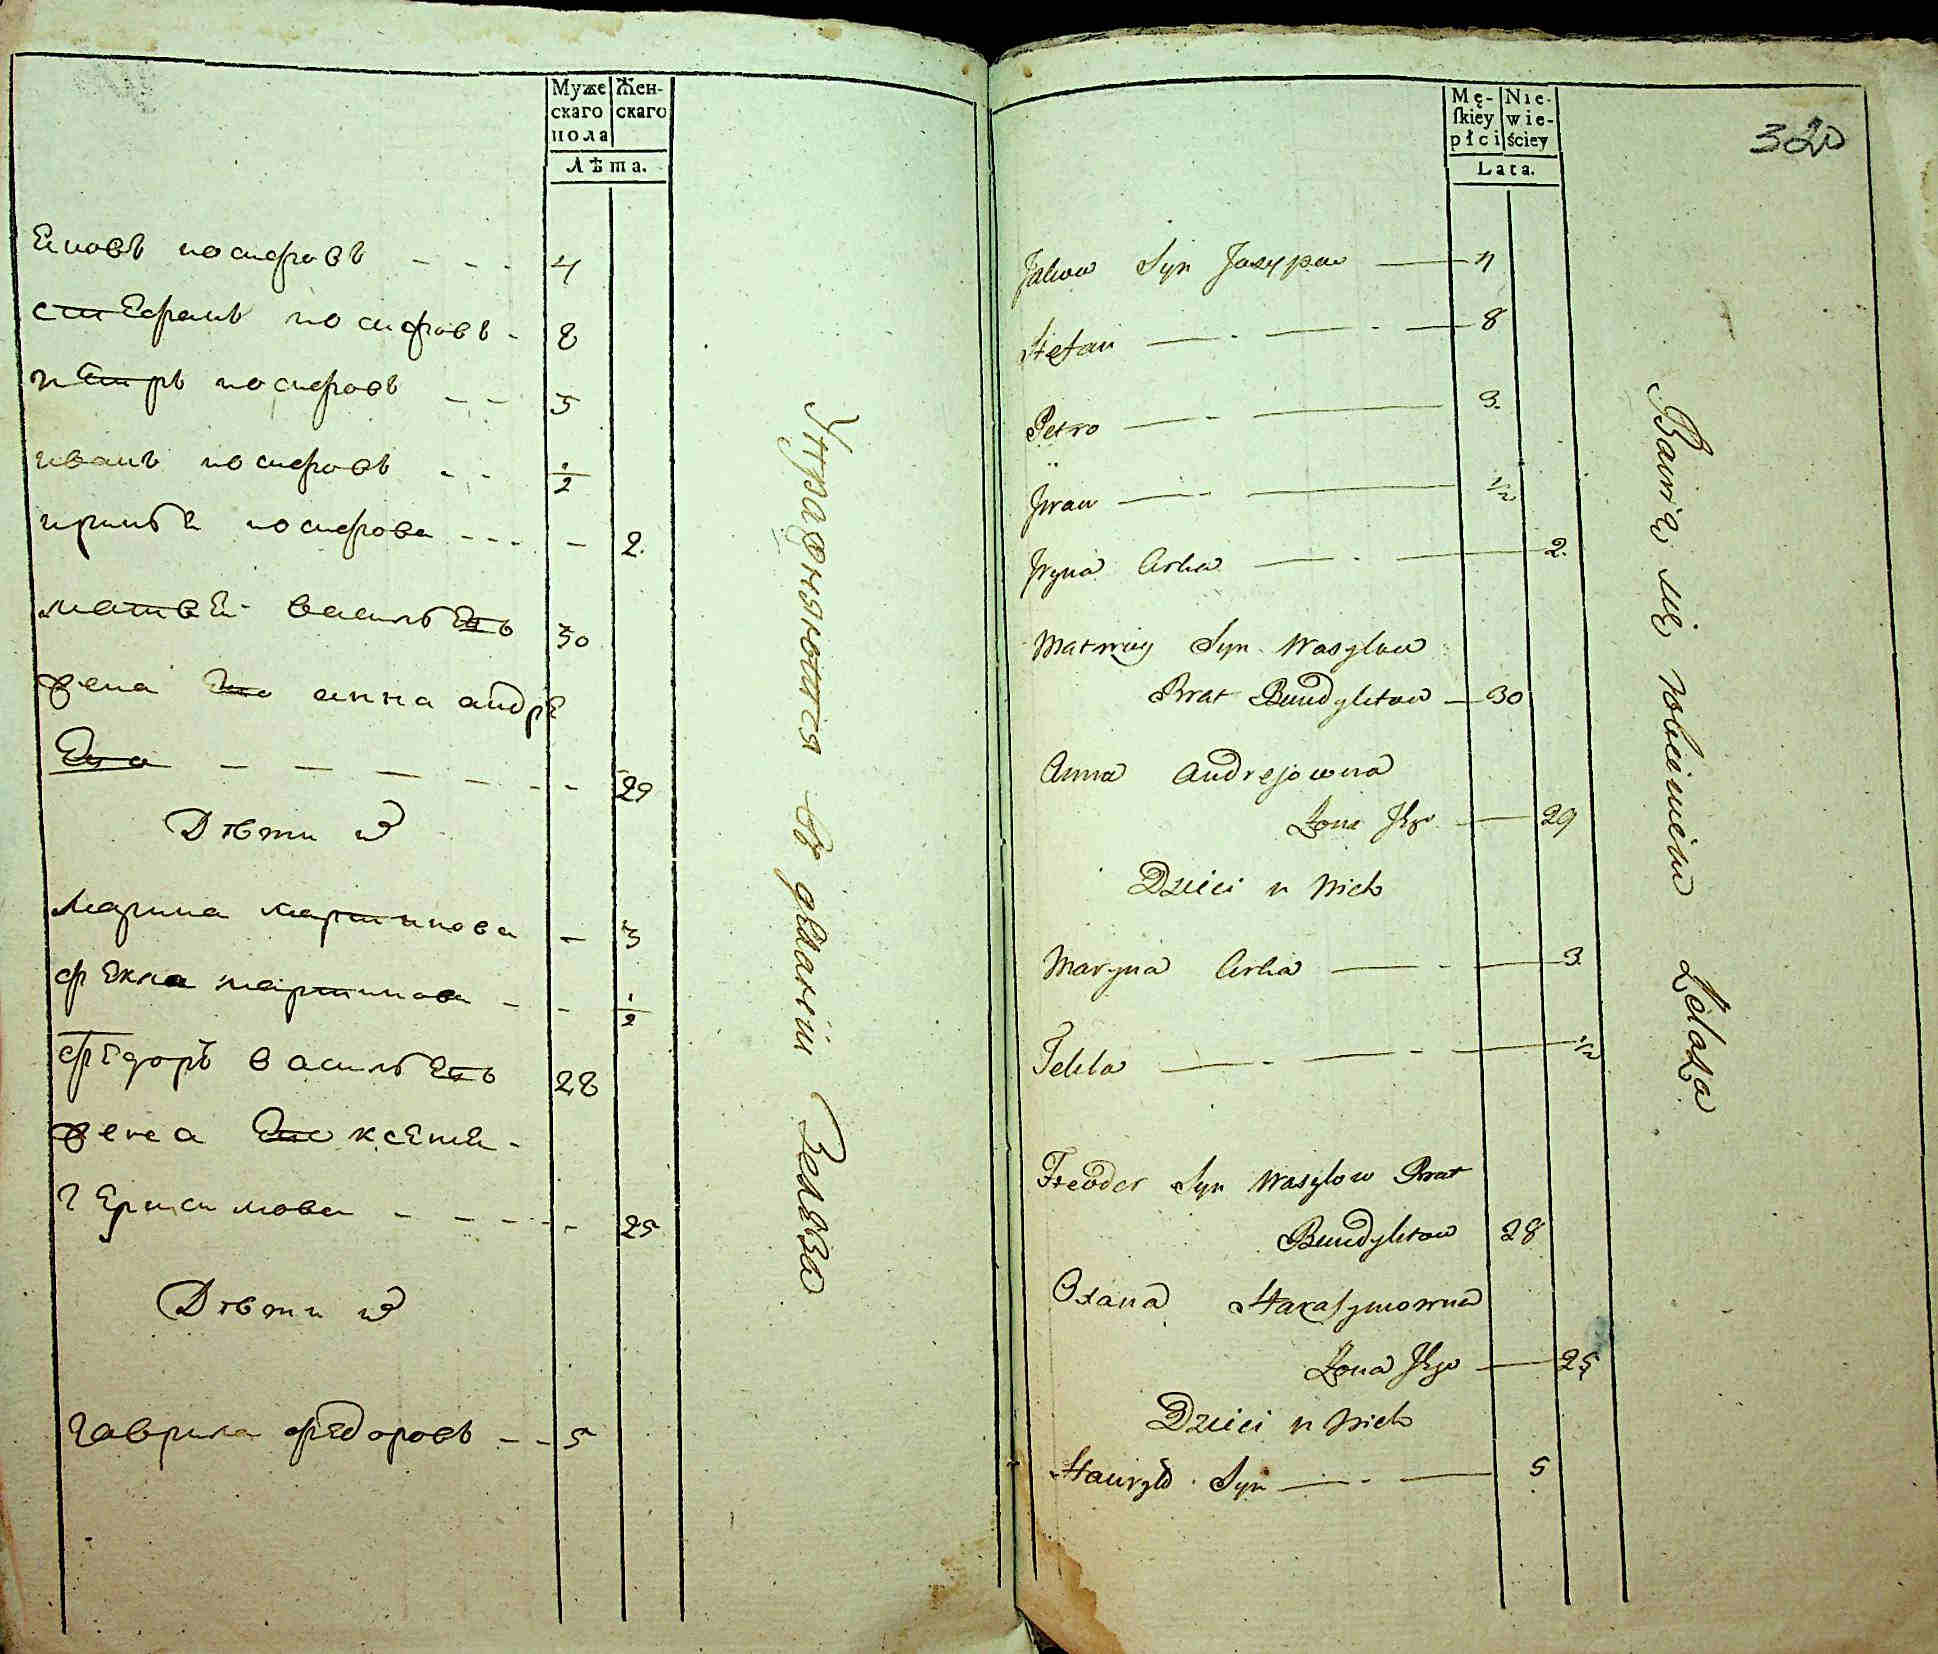 Муже
скаго
пола
Жен-
скаго
Лѣта.
Еповъ иосифовъ - - - 4
стефанъ иосифовъ - 8
петръ иосифовъ - - 3
иванъ иосифовъ - - 1/2
иосифова - - - - 2.
матвей васильевъ 30
жена его анна андре
ева - - - - - - 29
Дѣти их
марина мартинова - 3
фекла мартинова - - 1/2
федоръ васильевъ 28
жена его ксения
герасимова - - - - - 25
Дѣти их
гаврила федоровъ - - 5
Упражняются въ деланіи Зелеза
Mę-
skiey
płci
Nie-
wie-
ściey
Lata.
320
Jakow Syn Jozypow — 4
Stefan — - — - — 8
Petro — - — 3.
Jwan — - — 1/2
Jryna Corka — - — 2.
Matwiy Syn Wasylow
Brat Bendyktow — 30
Anna Andrejowna
Zona Jego — 29
Dzieci u Nich
Maryna Corka — - — 3.
Tekla — - — - — 1/2
Fteodor Syn Wasylow Brat
Bendyktow 28
Oxana Harasymowna
Zona Jego — 25
Dzieci u Nich
Hawryło Syn — - — 5
Bawią się robieniem Zelaza